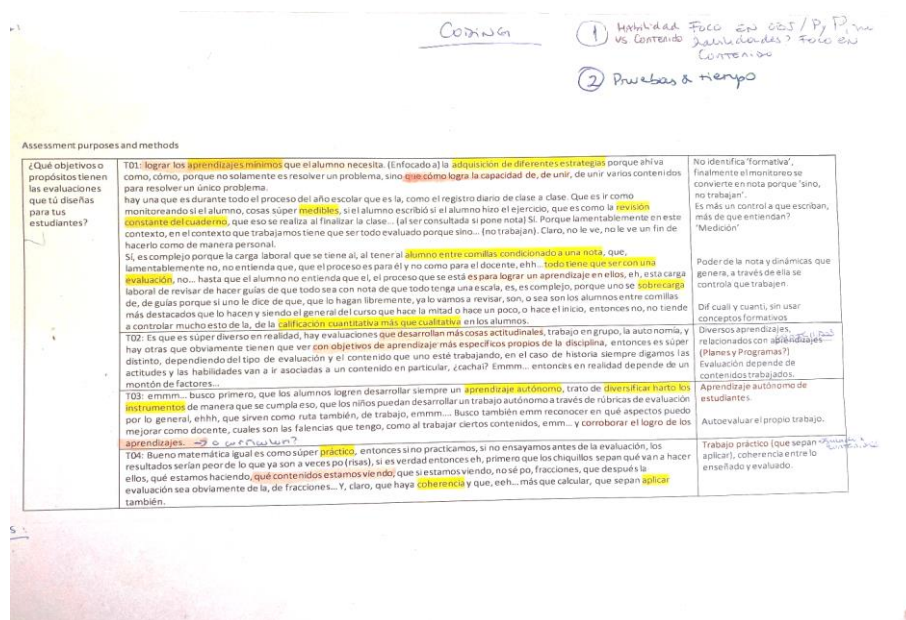 CODING
① Habilidad vs Contenido
Foco en
habilidades? Foco en
Contenido
② Pruebas & tiempo
Assessment purposes and methods
¿Qué objetivos o
propósitos tienen
las evaluaciones
que tú diseñas
para tus
estudiantes?
T01: lograr los aprendizajes mínimos que el alumno necesita. (Enfocado a) la adquisición de diferentes estrategias porque ahí va
como, cómo, porque no solamente es resolver un problema, sino que cómo logra la capacidad de, de unir, de unir varios contenidos
para resolver un único problema.
hay una que es durante todo el proceso del año escolar que es la, como el registro diario de clase a clase. Que es ir como
monitoreando si el alumno, cosas súper medibles, si el alumno escribió si el alumno hizo el ejercicio, que es como la revisión
constante del cuaderno, que eso se realiza al finalizar la clase... (al ser consultada si pone nota) Sí. Porque lamentablemente en este
contexto, en el contexto que trabajamos tiene que ser todo evaluado porque sino... (no trabajan). Claro, no le ve, no le ve un fin de
hacerlo como de manera personal.
Sí, es complejo porque la carga laboral que se tiene al, al tener al alumno entre comillas condicionado a una nota, que,
lamentablemente no, no entienda que, que el proceso es para él y no como para el docente, ehh... todo tiene que ser con una
evaluación, no... hasta que el alumno no entienda que el, el proceso que se está es para lograr un aprendizaje en ellos, eh, esta carga
laboral de revisar de hacer guías de que todo sea con nota de que todo tenga una escala, es, es complejo, porque uno se sobrecarga
de, de guías porque si uno le dice de que, que lo hagan libremente, ya lo vamos a revisar, son, o sea son los alumnos entre comillas
más destacados que lo hacen y siendo el general del curso que hace la mitad o hace un poco, o hace el inicio, entonces no, no tiende
a controlar mucho esto de la, de la calificación cuantitativa más que cualitativa en los alumnos.
No identifica 'formativa',
finalmente el monitoreo se
convierte en nota porque 'sino,
no trabajan'.
Es más un control a que escriban,
más de que entiendan?
'Medición'
Poder de la nota y dinámicas que
genera, a través de ella se
controla que trabajen.
Dif cuali y cuanti, sin usar
conceptos formativos
T02: Es que es súper diverso en realidad, hay evaluaciones que desarrollan más cosas actitudinales, trabajo en grupo, la autonomía, y
hay otras que obviamente tienen que ver con objetivos de aprendizaje más específicos propios de la disciplina, entonces es súper
distinto, dependiendo del tipo de evaluación y el contenido que uno esté trabajando, en el caso de historia siempre digamos las
actitudes y las habilidades van a ir asociadas a un contenido en particular, ¿cachai? Emmm... entonces en realidad depende de un
montón de factores...
Diversos aprendizajes,
relacionados con aprendizajes
(Planes y Programas?)
Evaluación depende de
contenidos trabajados.
T03: emmm... busco primero, que los alumnos logren desarrollar siempre un aprendizaje autónomo, trato de diversificar harto los
instrumentos de manera que se cumpla eso, que los niños puedan desarrollar un trabajo autónomo a través de rúbricas de evaluación
por lo general, ehhh, que sirven como ruta también, de trabajo, emmm.... Busco también emm reconocer en qué aspectos puedo
mejorar como docente, cuales son las falencias que tengo, como al trabajar ciertos contenidos, emm... y corroborar el logro de los
aprendizajes. → o curriculum?
Aprendizaje autónomo de
estudiantes.
Autoevaluar el propio trabajo.
T04: Bueno matemática igual es como súper práctico, entonces si no practicamos, si no ensayamos antes de la evaluación, los
resultados serían peor de lo que ya son a veces po (risas), si es verdad entonces eh, primero que los chiquillos sepan qué van a hacer
ellos, qué estamos haciendo, qué contenidos estamos viendo, que si estamos viendo, no sé po, fracciones, que después la
evaluación sea obviamente de la, de fracciones... Y, claro, que haya coherencia y que, eeh... más que calcular, que sepan aplicar
también.
Trabajo práctico (que sepan
aplicar), coherencia entre lo
enseñado y evaluado.